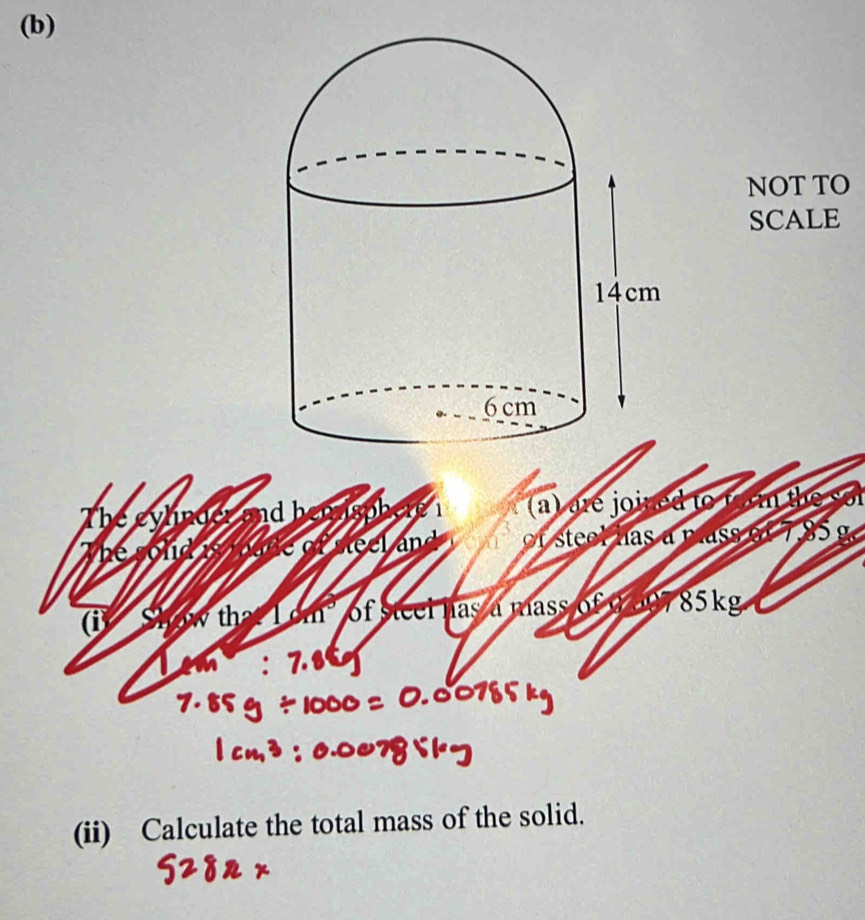 (b)
NOT TO
SCALE
14 cm
6 cm
The cylinder and hemisphere (a) are joined to form the
The solid is made of steel and of steel has a mass of 7.85 g.
(i) Show that 1 cm³ of steel has a mass of 0.00785 kg.
1 cm³ : 7.85g
7.85 g ÷ 1000 = 0.00785 kg
1 cm³ : 0.00785kg
(ii) Calculate the total mass of the solid.
528π ×